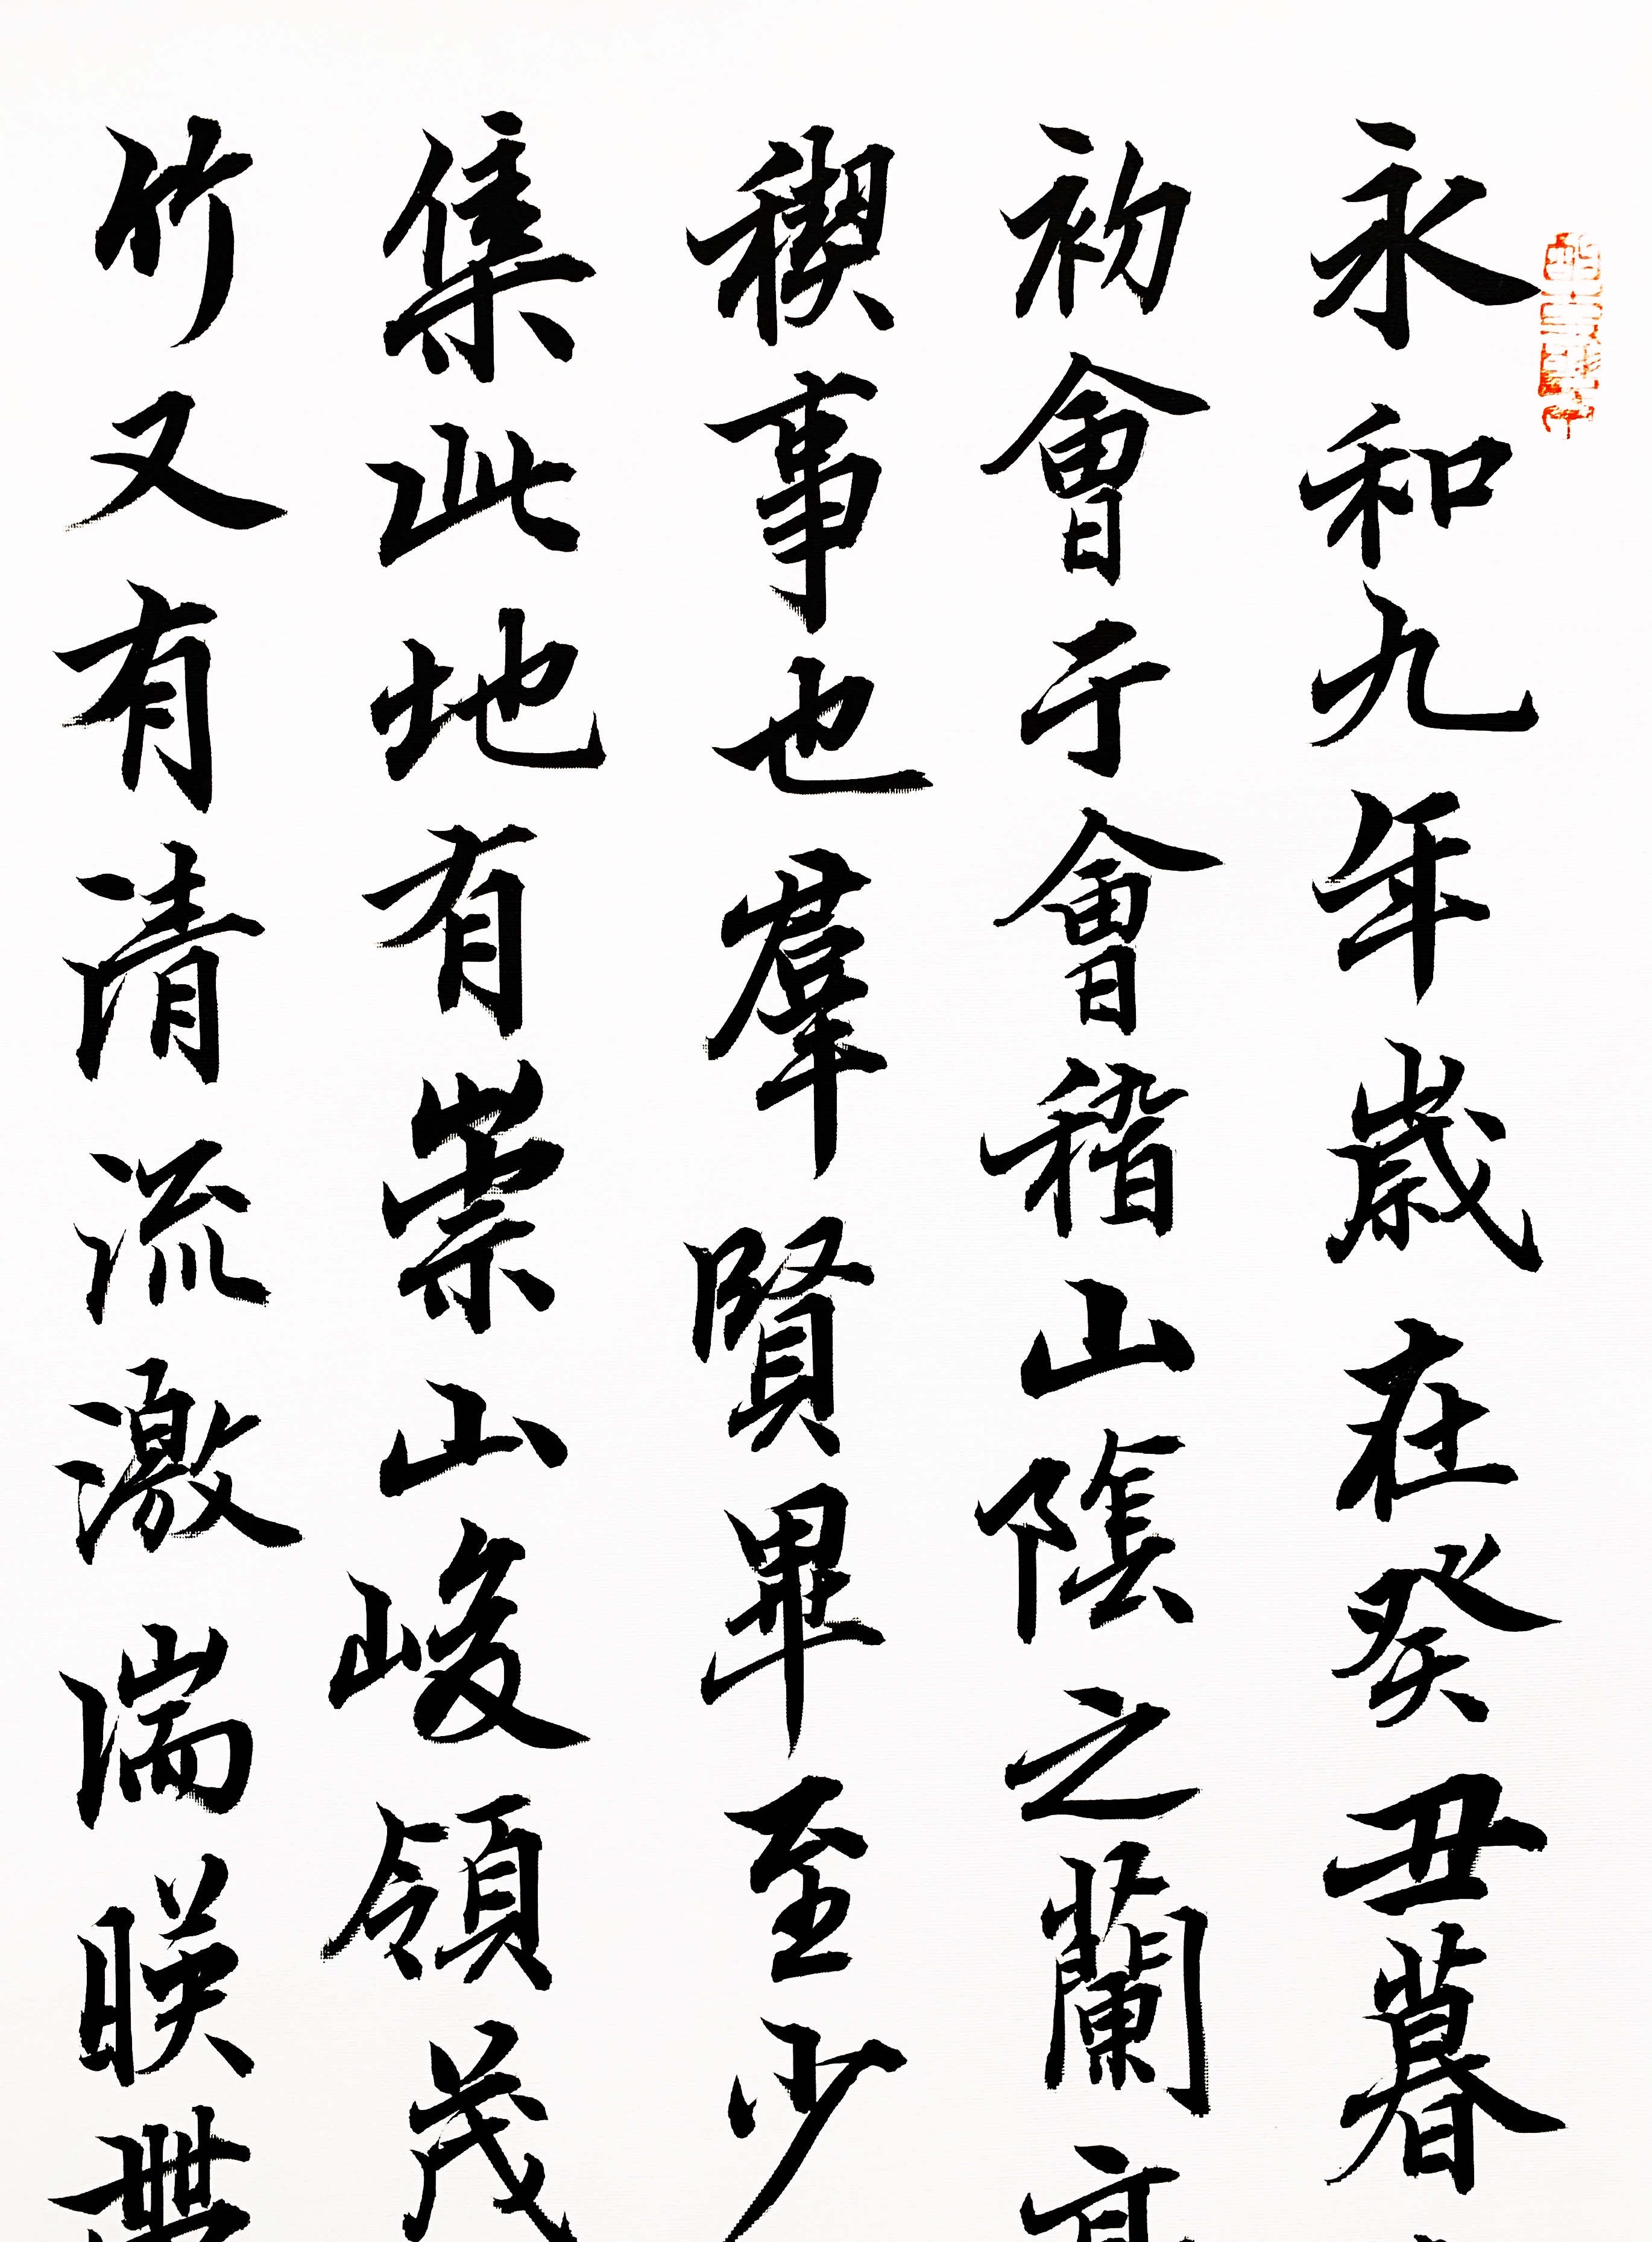 永和九年歲在癸丑暮
初會于會稽山陰之蘭亭
稧事也羣賢畢至少
集此地有崇山峻領茂
竹又有清流激湍暎帶